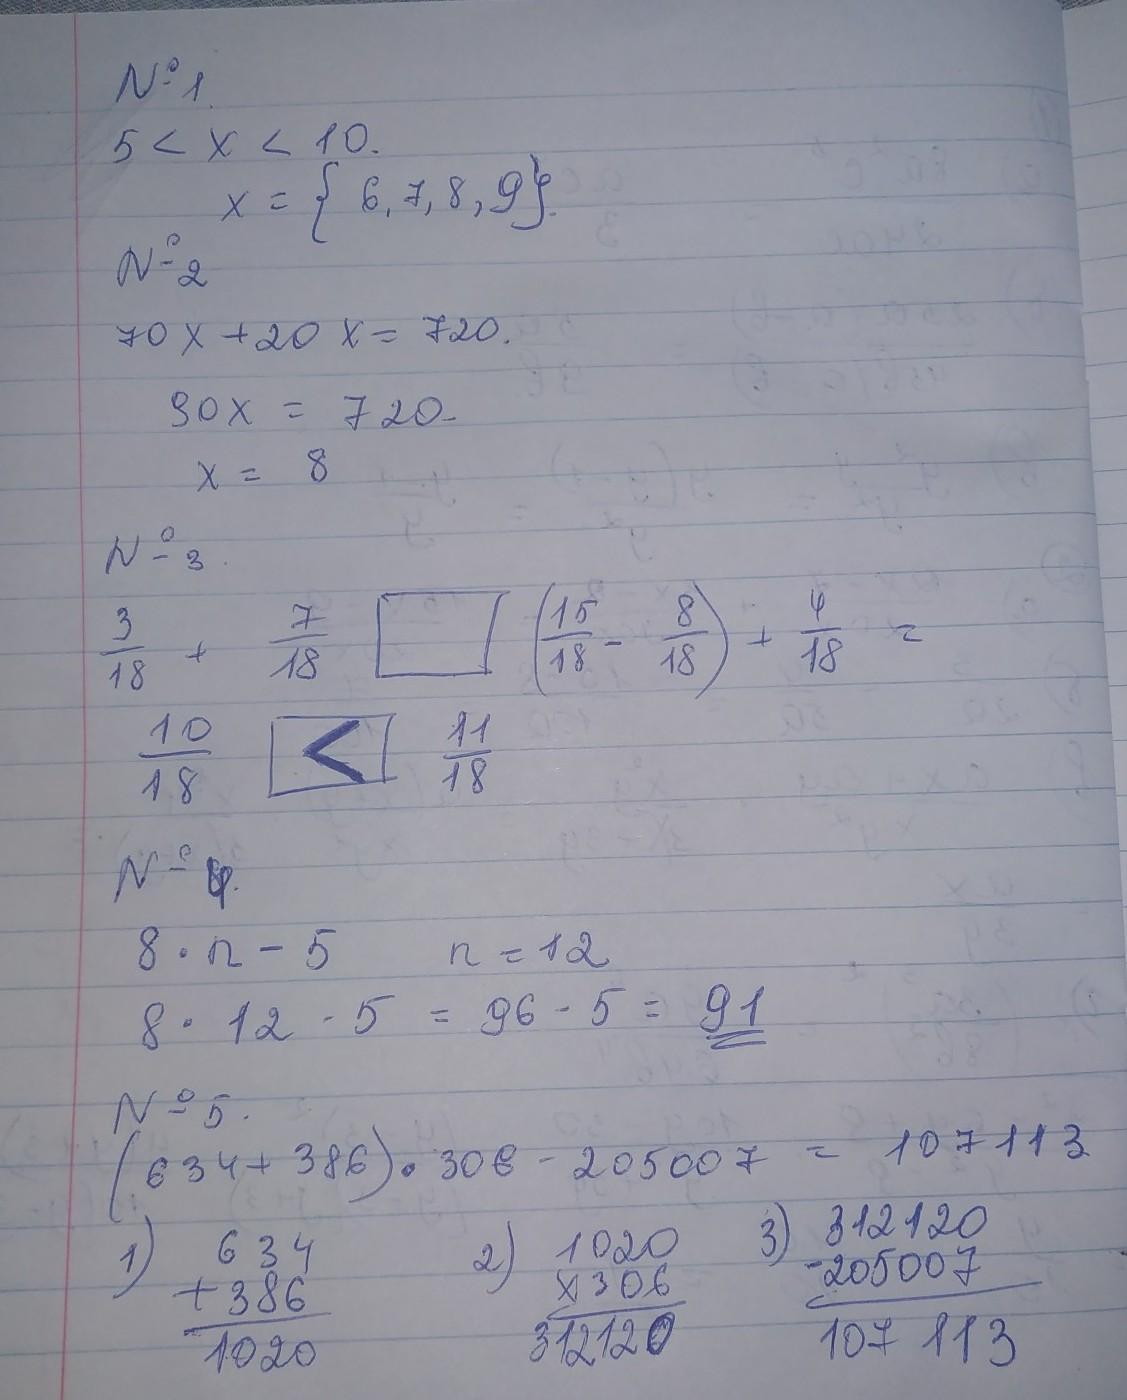 №1.
5 < x < 10.
x = { 6, 7, 8, 9}.
№2
70x + 20x = 720.
90x = 720
x = 8
№3.
3/18 + 7/18 □ (15/18 - 8/18) + 4/18 =
10/18 < 11/18
№4.
8 · n - 5 n = 12
8 · 12 - 5 = 96 - 5 = 91
№5.
(634 + 386) · 306 - 205007 = 107113
1) 634 2) 1020 3) 312120
+386 x306 -205007
1020 312120 107113